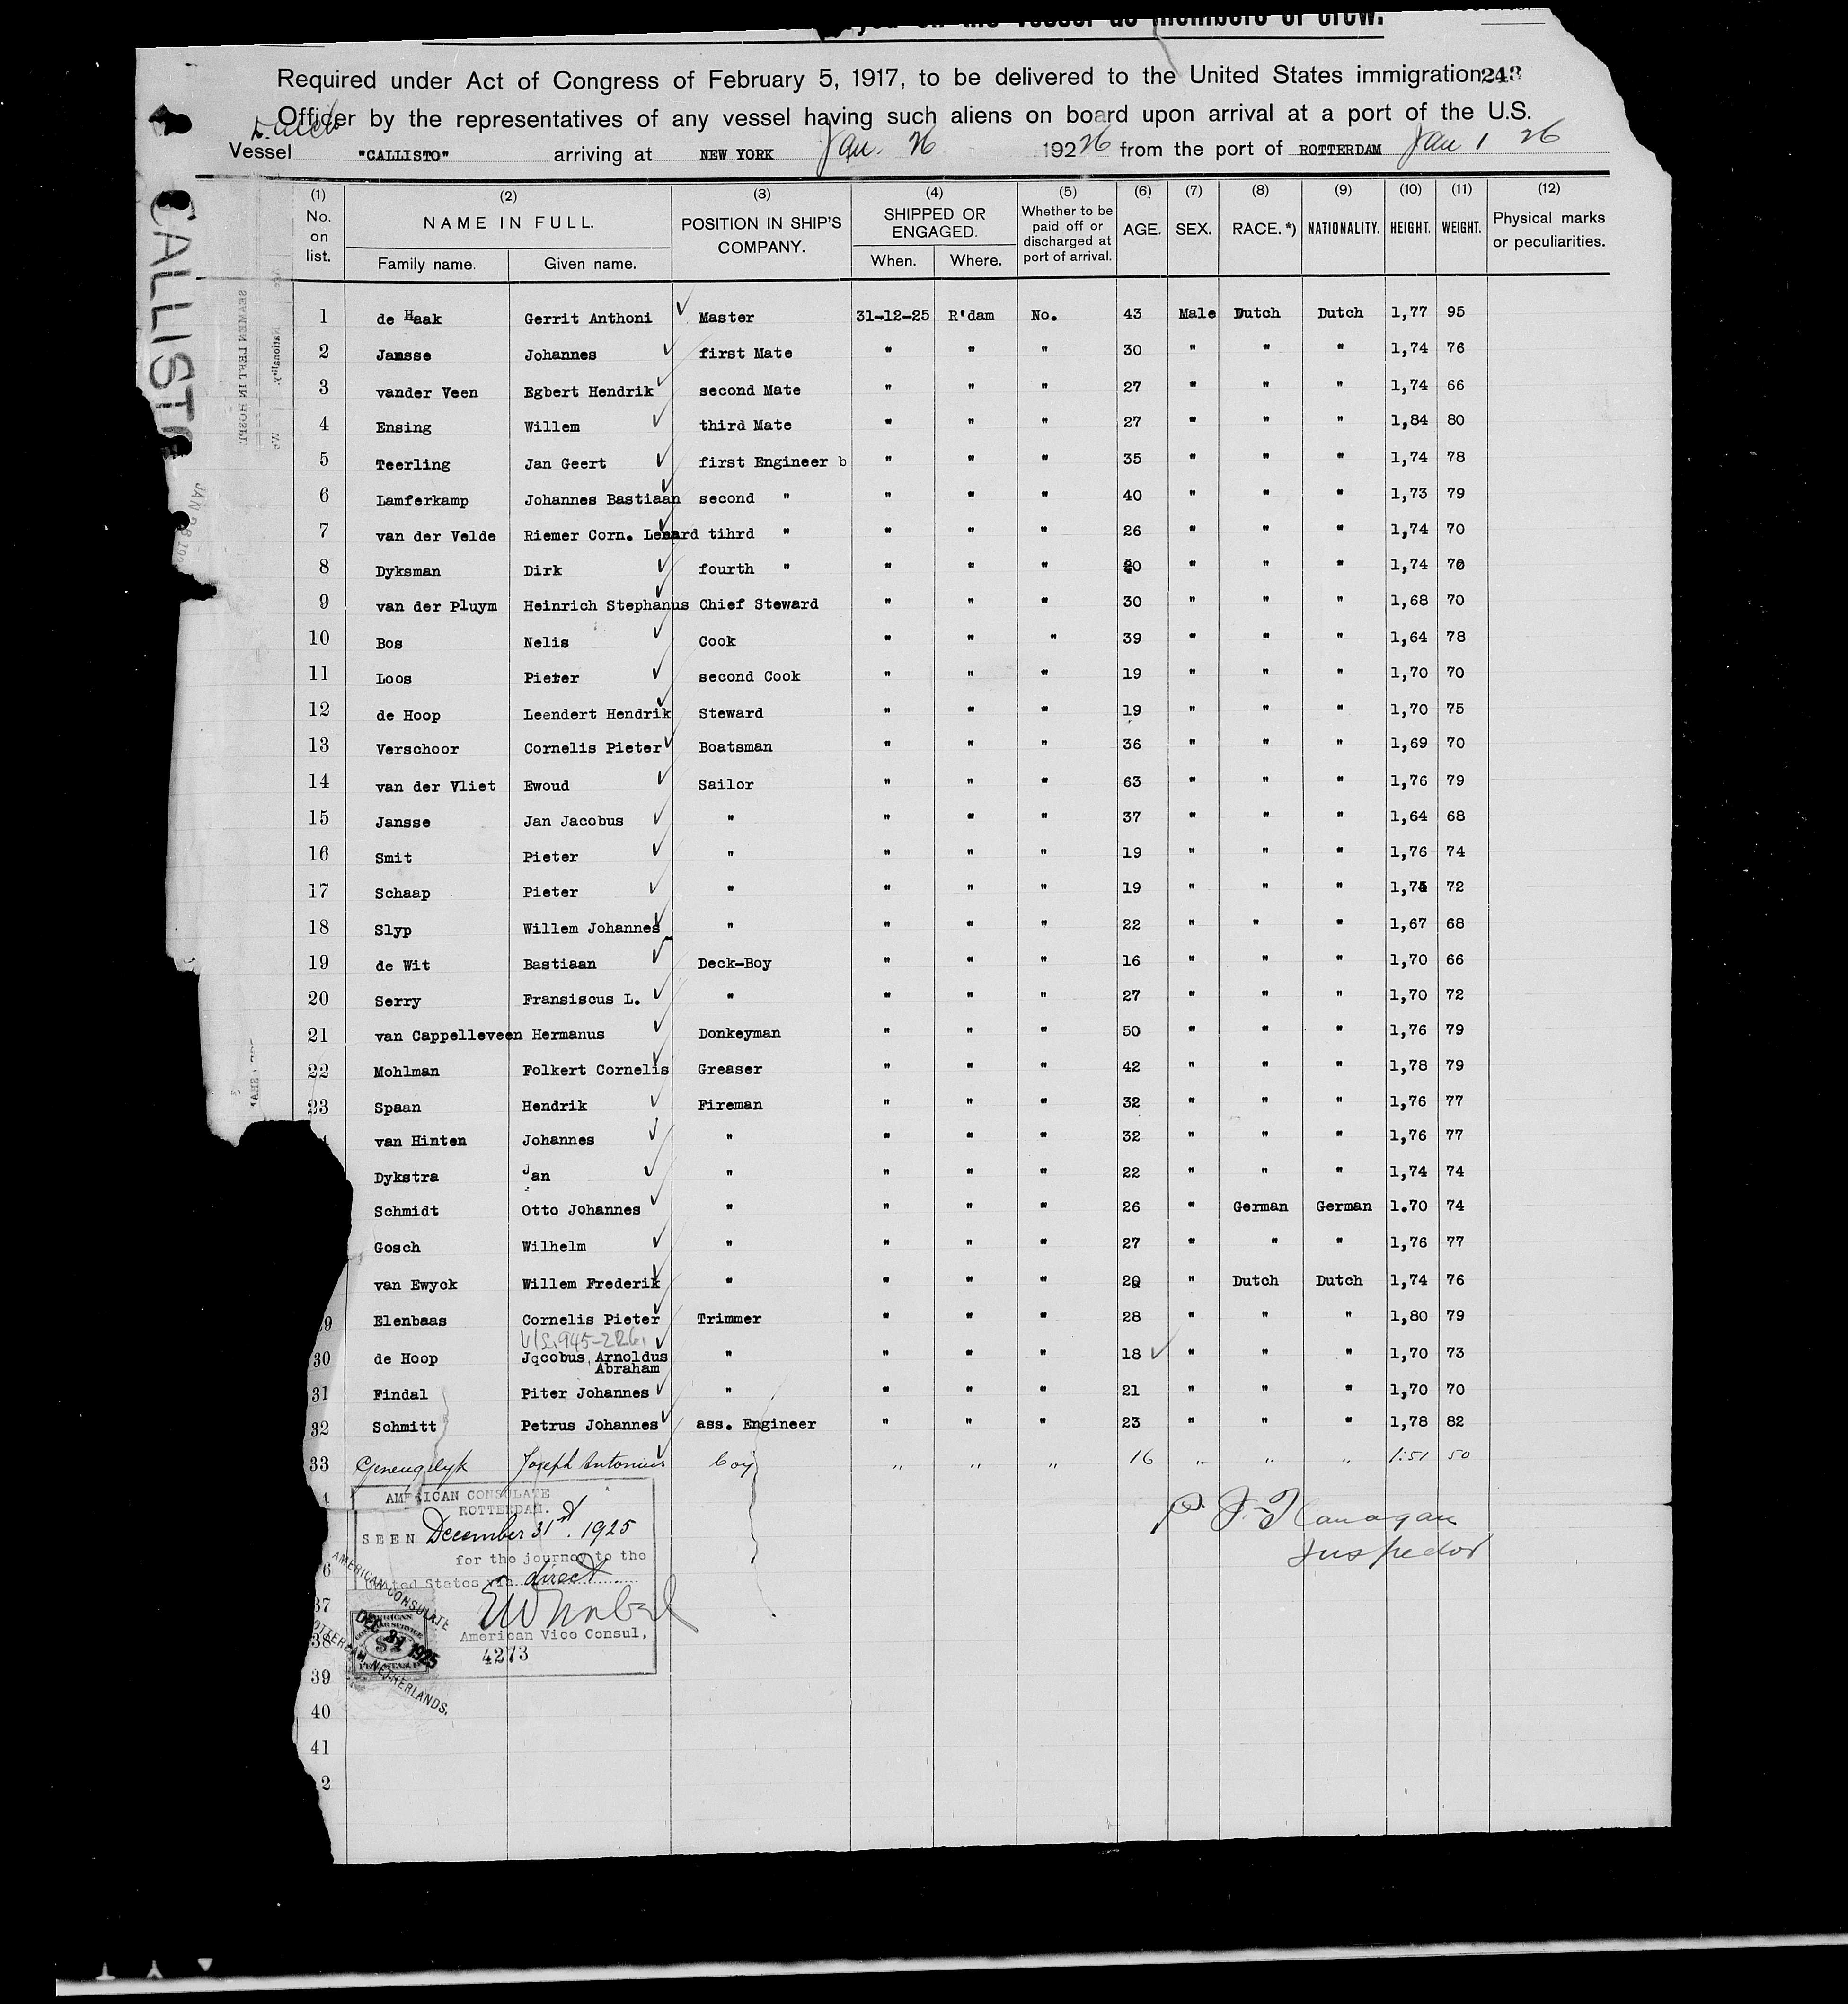 Required under Act of Congress of February 5, 1917, to be delivered to the United States immigration 243
Officer by the representatives of any vessel having such aliens on board upon arrival at a port of the U.S.
Dutch
Vessel "CALLISTO" arriving at NEW YORK Jan. 26 192 26 from the port of ROTTERDAM Jan 1 26
(1) (2) (3) (4) (5) (6) (7) (8) (9) (10) (11) (12)
No. on list. NAME IN FULL. Family name. Given name. POSITION IN SHIP'S COMPANY. SHIPPED OR ENGAGED. When. Where. Whether to be paid off or discharged at port of arrival. AGE. SEX. RACE. *) NATIONALITY. HEIGHT. WEIGHT. Physical marks or peculiarities.
1 de Haak Gerrit Anthoni Master 31-12-25 R'dam No. 43 Male Dutch Dutch 1,77 95
2 Jansse Johannes first Mate " " " 30 " " " 1,74 76
3 vander Veen Egbert Hendrik second Mate " " " 27 " " " 1,74 66
4 Ensing Willem third Mate " " " 27 " " " 1,84 80
5 Teerling Jan Geert first Engineer b " " " 35 " " " 1,74 78
6 Lamferkamp Johannes Bastiaan second " " " " 40 " " " 1,73 79
7 van der Velde Riemer Corn. Lenard tihrd " " " " 26 " " " 1,74 70
8 Dyksman Dirk fourth " " " " " " " 1,74 70
9 van der Pluym Heinrich Stephanus Chief Steward " " " 30 " " " 1,68 70
10 Bos Nelis Cook " " " 39 " " " 1,64 78
11 Loos Pieter second Cook " " " 19 " " " 1,70 70
12 de Hoop Leendert Hendrik Steward " " " 19 " " " 1,70 75
13 Verschoor Cornelis Pieter Boatsman " " " 36 " " " 1,69 70
14 van der Vliet Ewoud Sailor " " " 63 " " " 1,76 79
15 Jansse Jan Jacobus " " " " 37 " " " 1,64 68
16 Smit Pieter " " " " 19 " " " 1,76 74
17 Schaap Pieter " " " " 19 " " " 72
18 Slyp Willem Johannes " " " " 22 " " " 1,67 68
19 de Wit Bastiaan Deck-Boy " " " 16 " " " 1,70 66
20 Serry Fransiscus L. " " " " 27 " " " 1,70 72
21 van Cappelleveen Hermanus Donkeyman " " " 50 " " " 1,76 79
22 Mohlman Folkert Cornelis Greaser " " " 42 " " " 1,78 79
23 Spaan Hendrik Fireman " " " 32 " " " 1,76 77
van Hinten Johannes " " " " 32 " " " 1,76 77
Dykstra Jan " " " " 22 " " " 1,74 74
Schmidt Otto Johannes " " " " 26 " German German 1.70 74
Gosch Wilhelm " " " " 27 " " " 1,76 77
van Ewyck Willem Frederik " " " " " Dutch Dutch 1,74 76
9 Elenbaas Cornelis Pieter Trimmer " " " 28 " " " 1,80 79
30 de Hoop Jacobus Arnoldus Abraham " " " " 18 " " " 1,70 73
31 Findal Piter Johannes " " " " 21 " " " 1,70 70
32 Schmitt Petrus Johannes ass. Engineer " " " 23 " " " 1,78 82
33 Geneugelyk Joseph Antonius boy " " " 16 " " " 1.51 50
AMERICAN CONSULATE
ROTTERDAM.
SEEN December 31st. 1925
for the journey to the
United States via direct
American Vice Consul,
4273
AMERICAN CONSULATE
DEC 31 1925
ROTTERDAM, NETHERLANDS.
J. Flanagan
Inspector
6
37
38
39
40
41
2
CALLISTO
SEAMEN LEFT IN HOSPI
Nationality